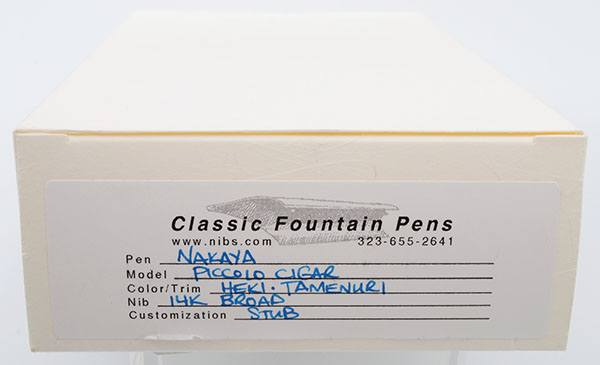 Classic Fountain Pens
www.nibs.com 323-655-2641
Pen NAKAYA
Model PICCOLO CIGAR
Color/Trim HEKI-TAMENURI
Nib 14K BROAD
Customization STUB